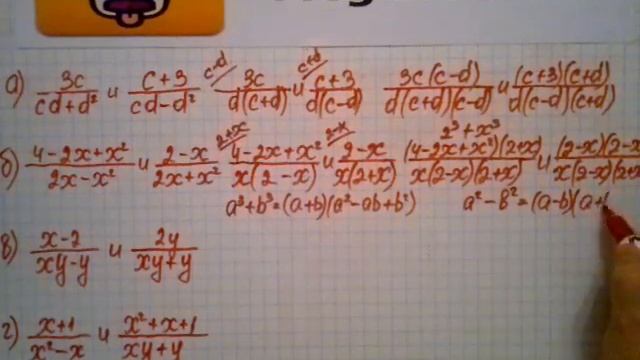 а) 3c/(cd+d²) и (c+3)/(cd-d²) c-d/ 3c/(d(c+d)) и c+d/ (c+3)/(d(c-d)) 3c(c-d)/(d(c+d)(c-d)) и (c+3)(c+d)/(d(c-d)(c+d))
2³+x³
б) (4-2x+x²)/(2x-x²) и (2-x)/(2x+x²) 2+x/ (4-2x+x²)/(x(2-x)) и 2-x/ (2-x)/(x(2+x)) (4-2x+x²)(2+x)/(x(2-x)(2+x)) и (2-x)(2-x/(x(2-x)(2+x
a³+b³=(a+b)(a²-ab+b²) a²-b²=(a-b)(a+
в) (x-2)/(xy-y) и 2y/(xy+y)
г) (x+1)/(x²-x) и (x²+x+1)/(xy+y)